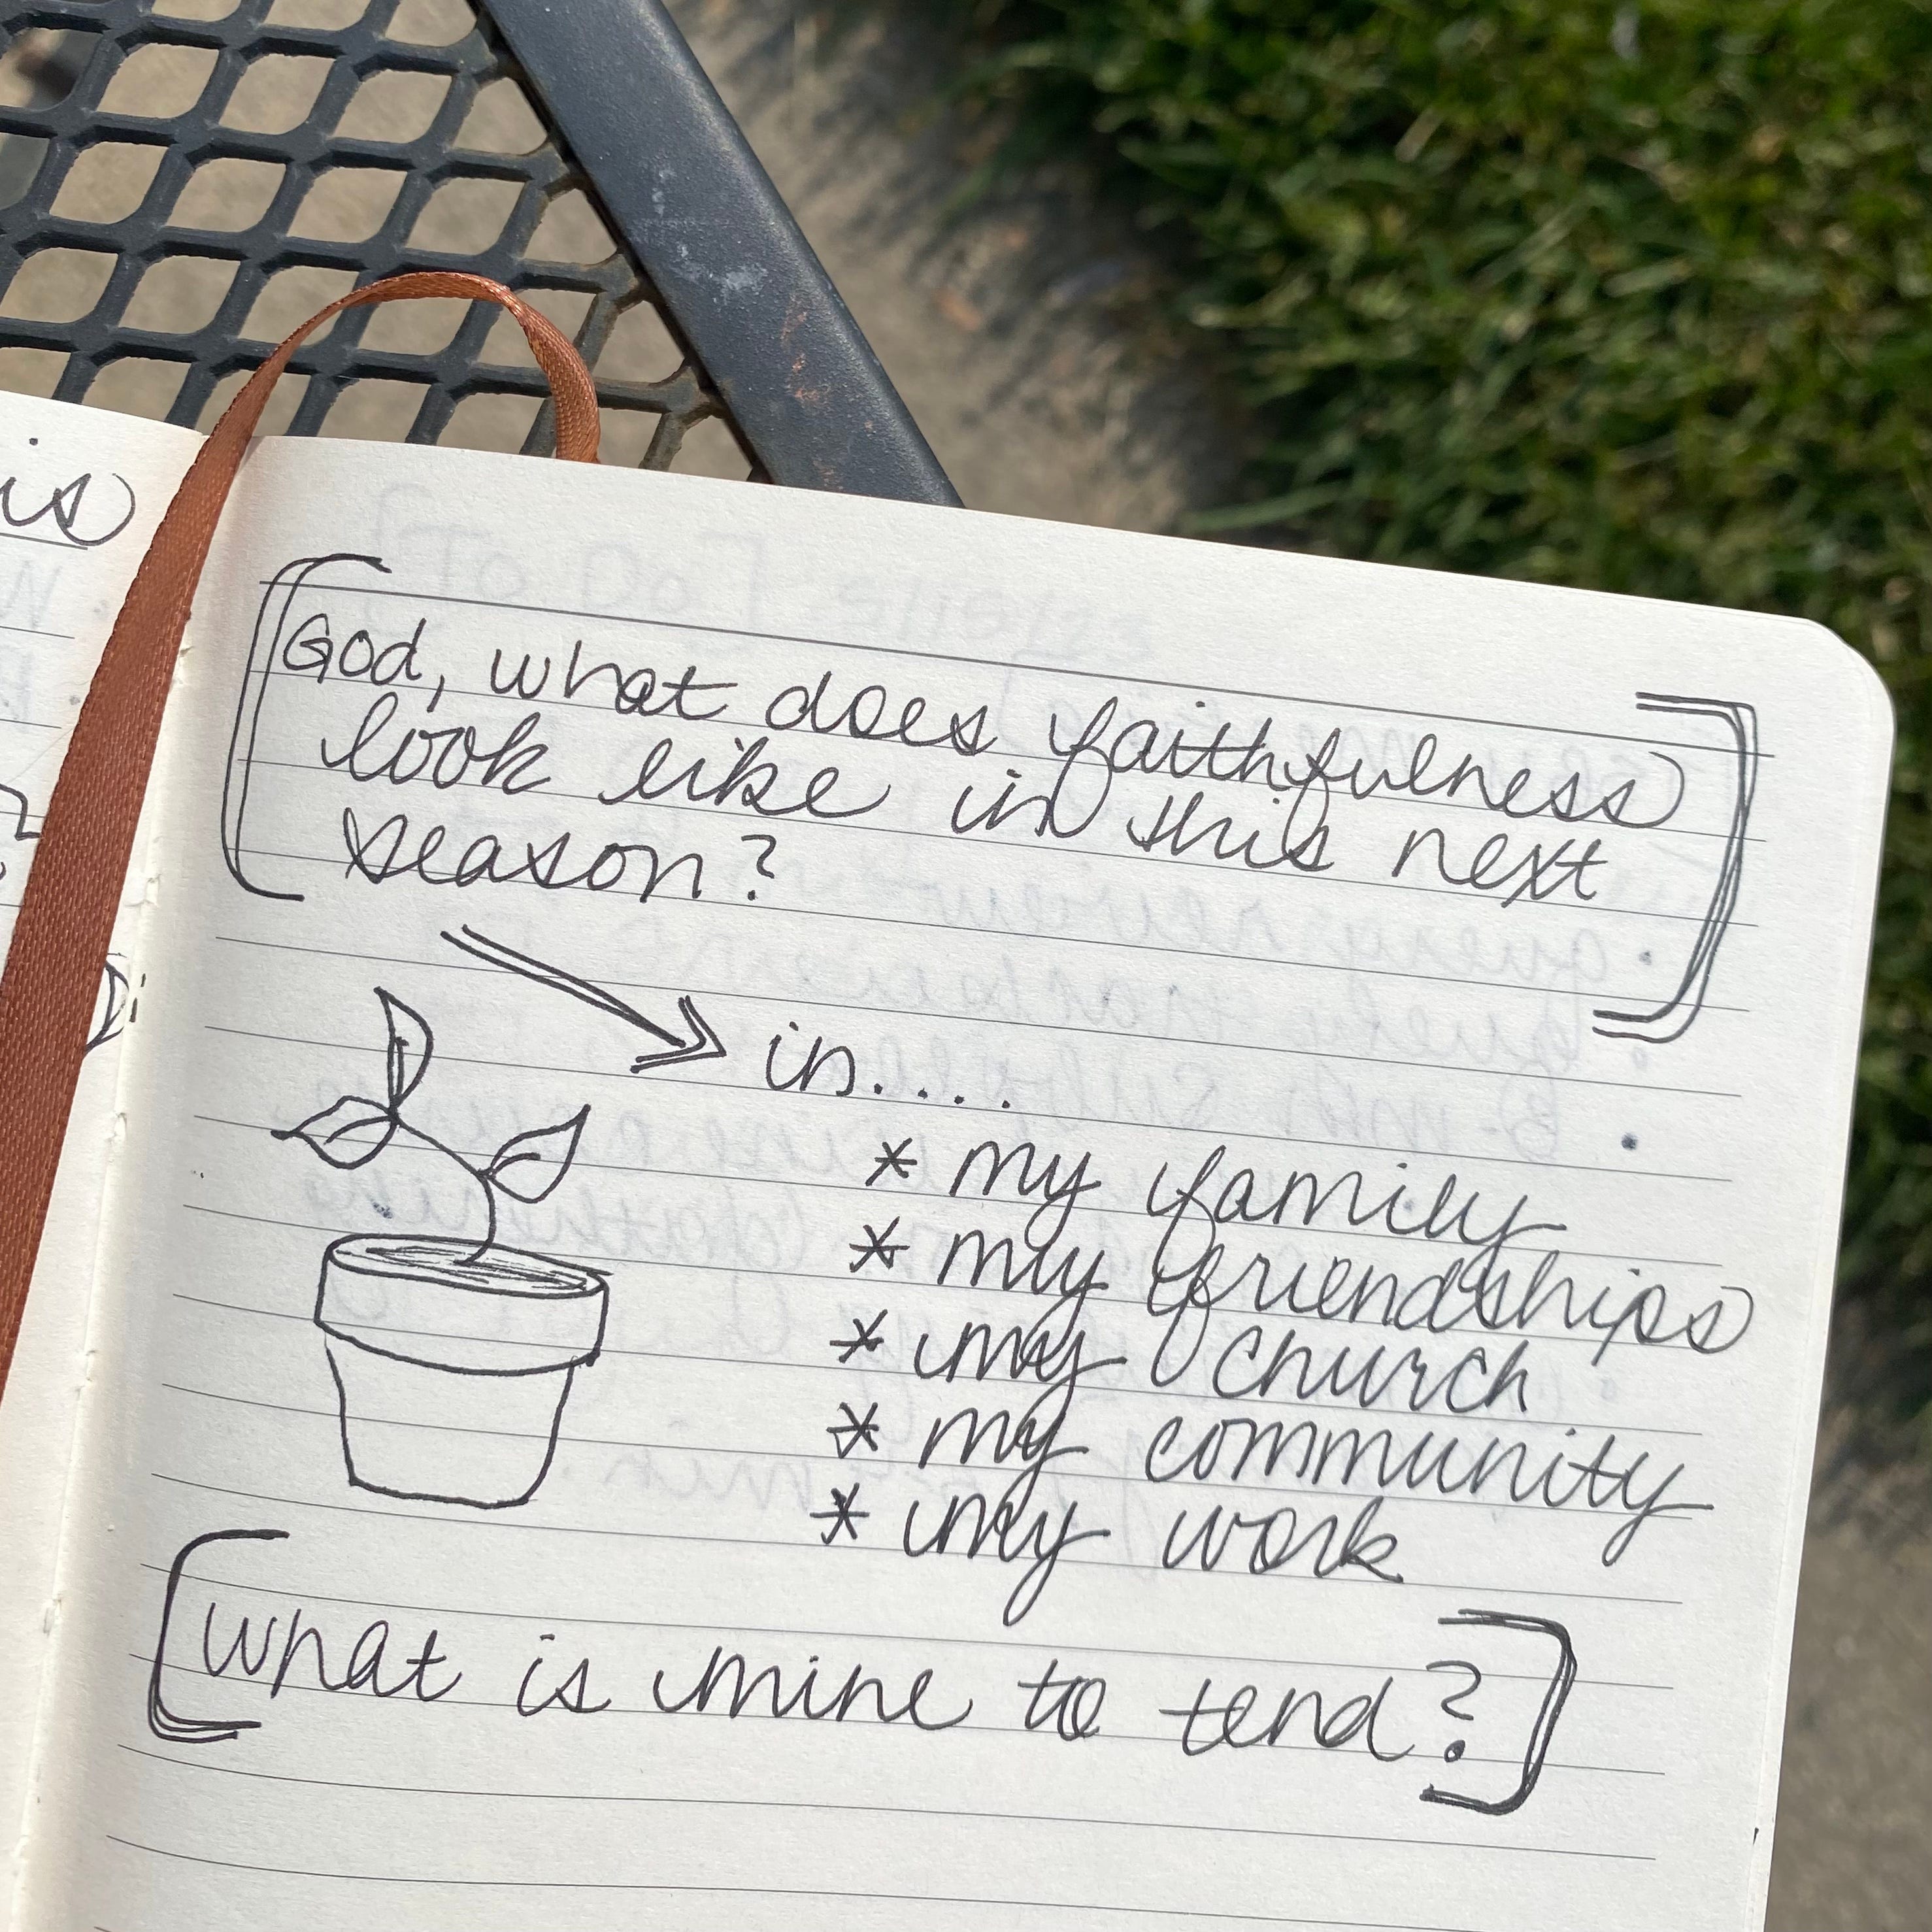 is
God, what does faithfulness
look like in this next
season?
in....
* my family
* my friendships
* my church
* my community
* my work
what is mine to tend?